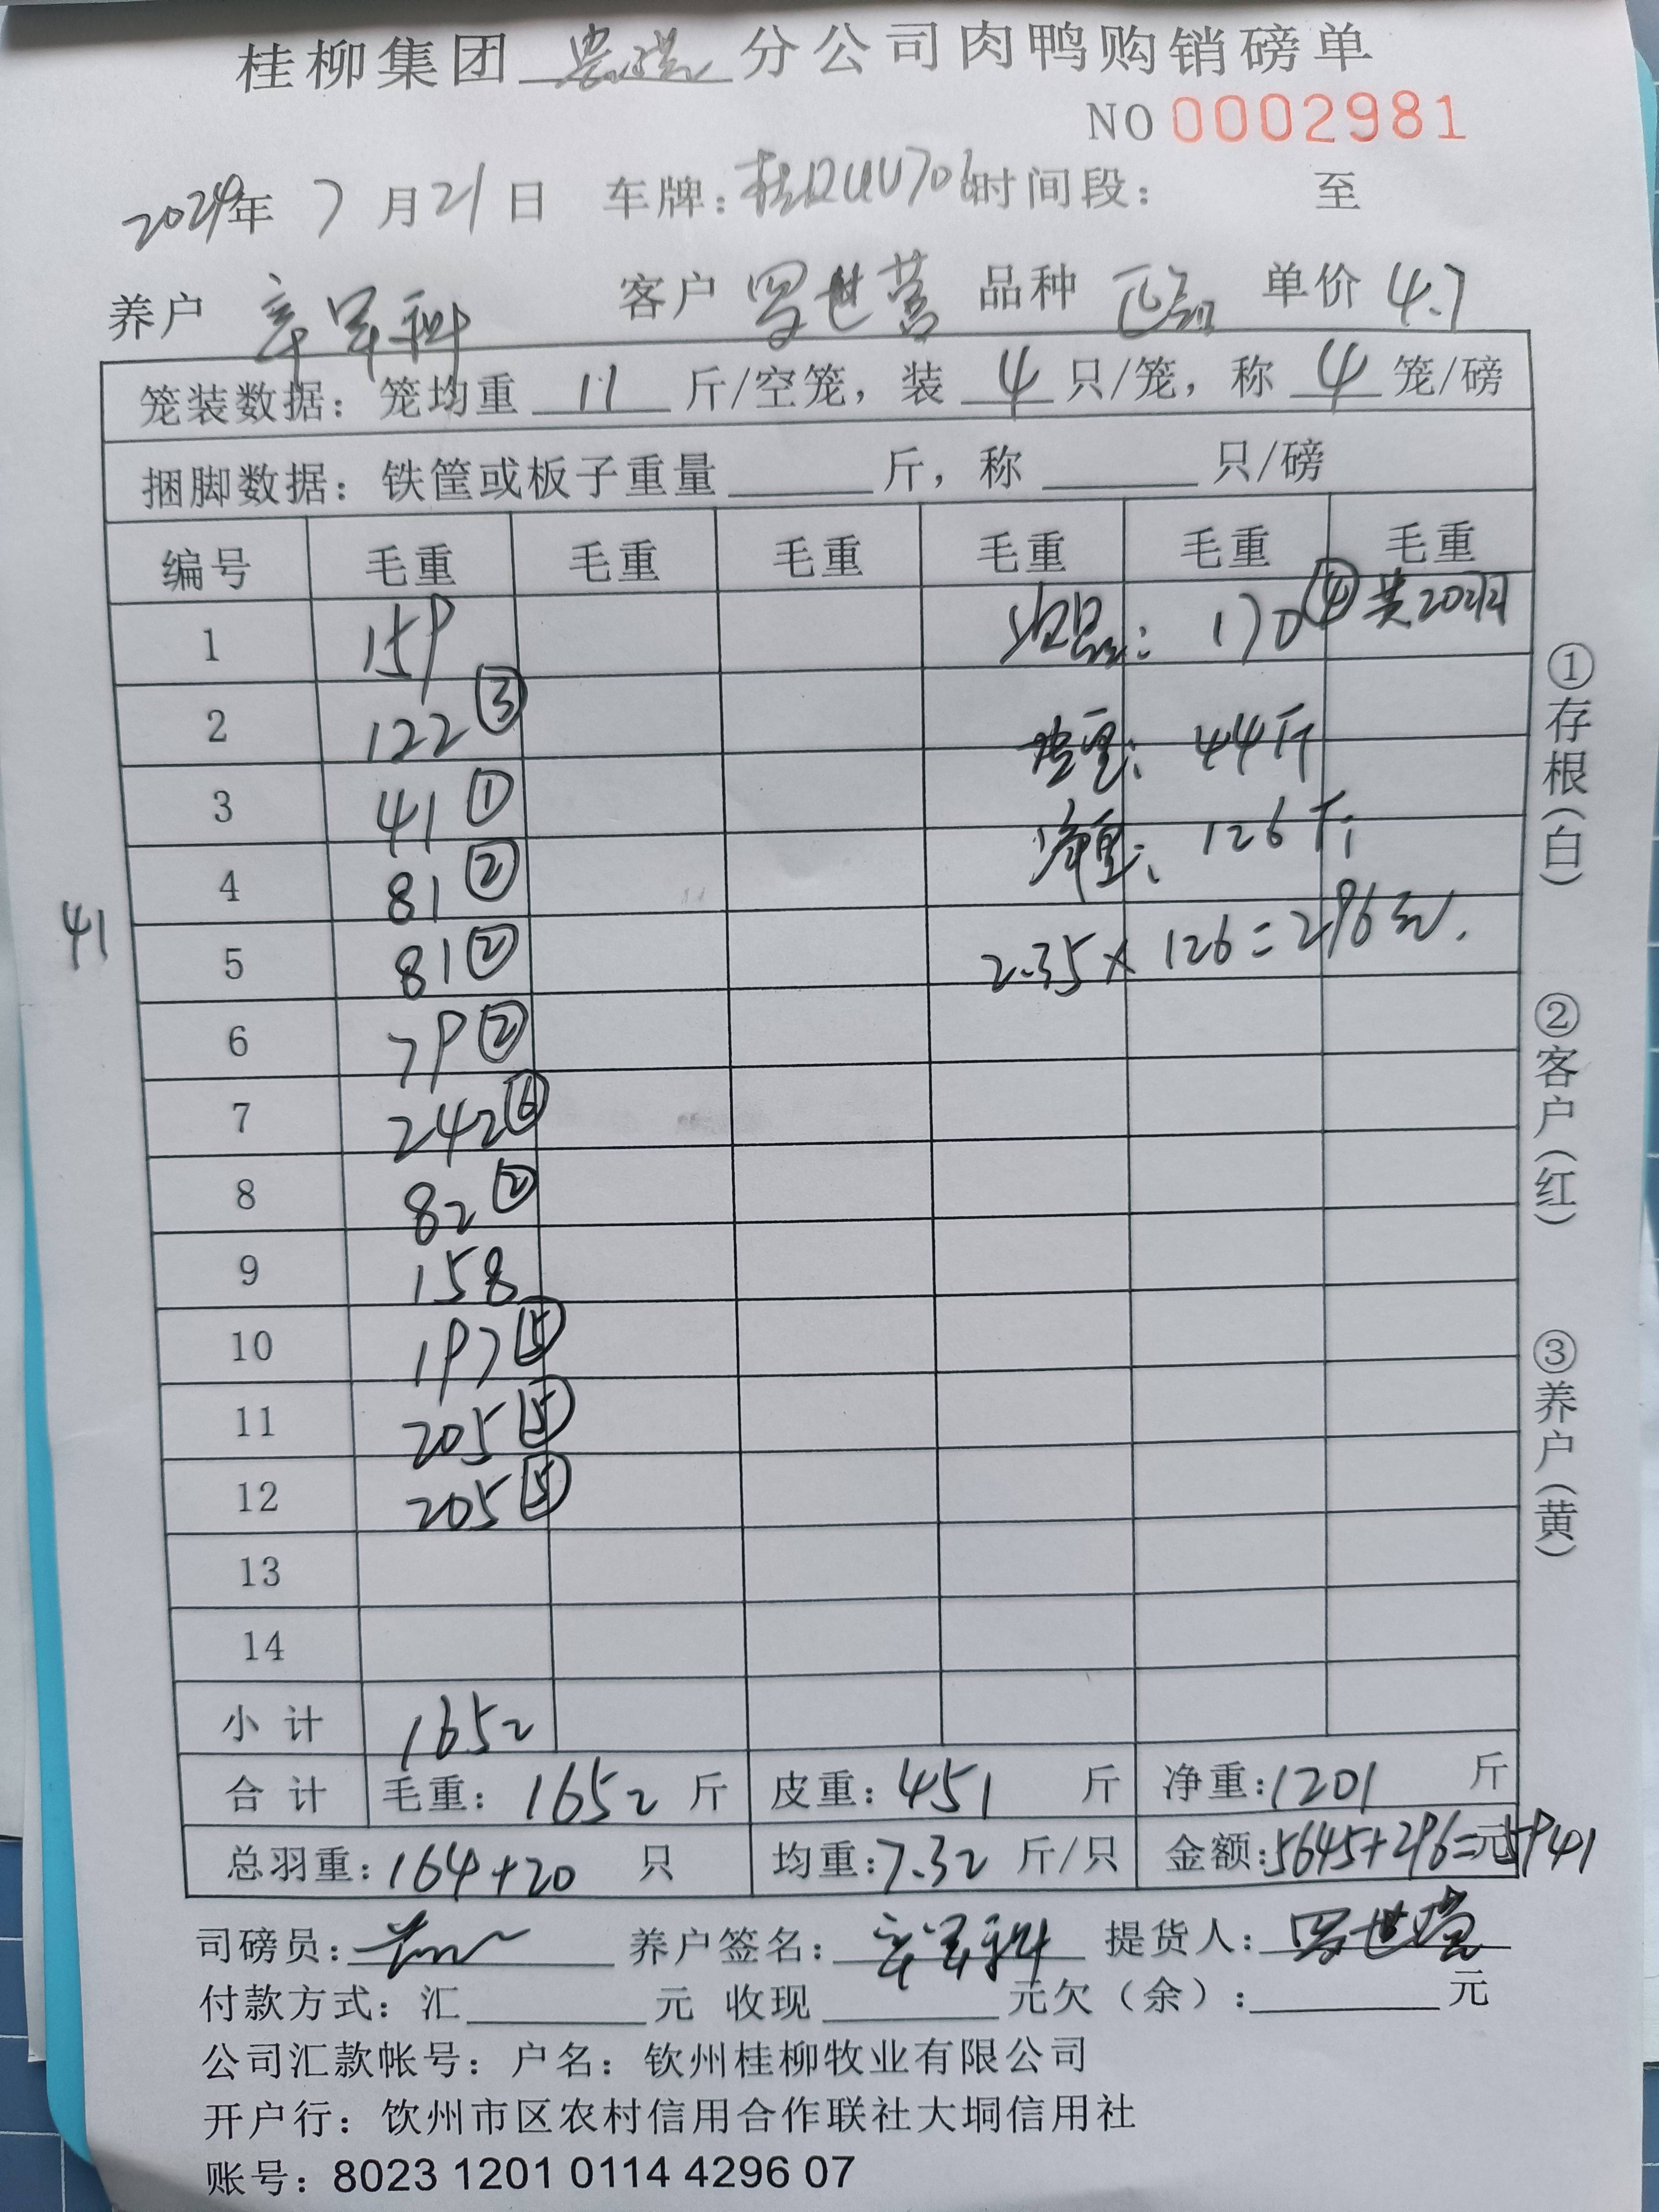 桂柳集团 分公司肉鸭购销磅单
NO 0002981
2024年 7 月 21 日 车牌: 桂 706 时间段: 至
养户 客户 罗世营 品种 单价 4.7
笼装数据: 笼均重 11 斤/空笼, 装 4 只/笼, 称 4 笼/磅
捆脚数据: 铁筐或板子重量 斤, 称 只/磅
编号 毛重 毛重 毛重 毛重 毛重 毛重
1 159 次品: 170 ④ 共20只
2 122 ③ 笼重: 44斤
3 41 ① 净重: 126斤
4 81 ②
5 81 ② 2.35×126=296元.
41
6 79 ②
7 242 ⑥
8 82 ②
9 158
10 197 ⑤
11 205 ⑤
12 205 ⑤
13
14
小计 1652
合计 毛重: 1652 斤 皮重: 451 斤 净重: 1201 斤
总羽重: 164+20 只 均重: 7.32 斤/只 金额: 5645+296=元5941
司磅员: 养户签名: 提货人: 罗世营
付款方式: 汇 元 收现 元欠(余): 元
公司汇款帐号: 户名: 钦州桂柳牧业有限公司
开户行: 钦州市区农村信用合作联社大垌信用社
账号: 8023 1201 0114 4296 07
①存根(白)
②客户(红)
③养户(黄)